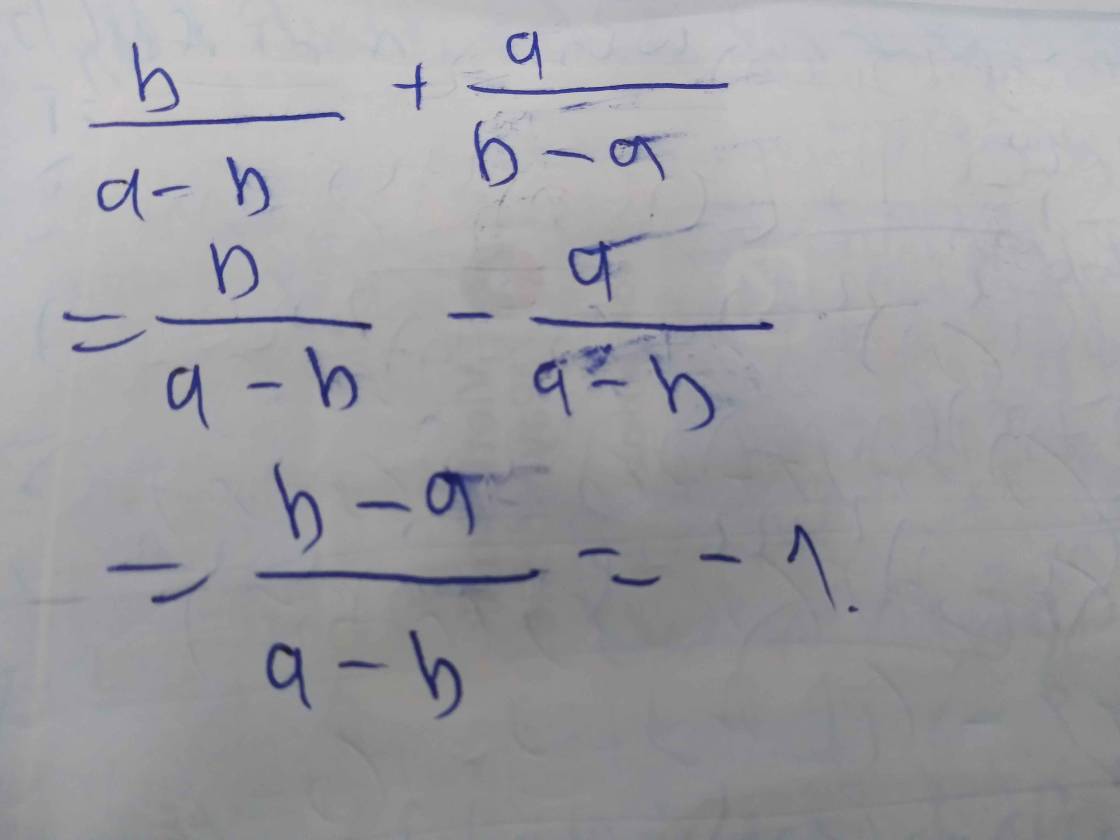 b/(a - b) + a/(b - a)
= b/(a - b) - a/(a - b)
= (b - a)/(a - b) = - 1.